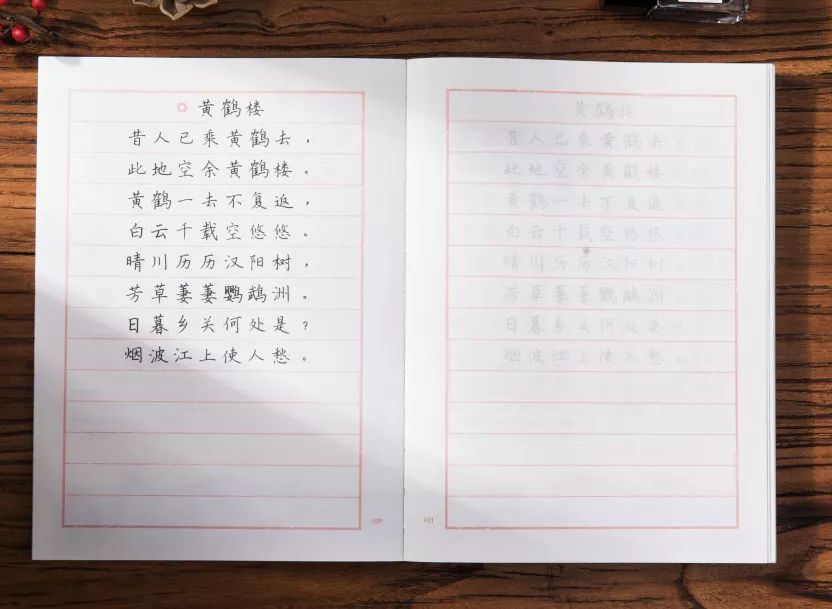 黄鹤楼
昔人已乘黄鹤去，
此地空余黄鹤楼。
黄鹤一去不复返，
白云千载空悠悠。
晴川历历汉阳树，
芳草萋萋鹦鹉洲。
日暮乡关何处是？
烟波江上使人愁。
黄鹤楼
昔人已乘黄鹤去，
此地空余黄鹤楼
黄鹤一去不复返，
白云千载空悠悠。
晴川历历汉阳树，
芳草萋萋鹦鹉洲。
日暮乡关何处是？
烟波江上使人愁。